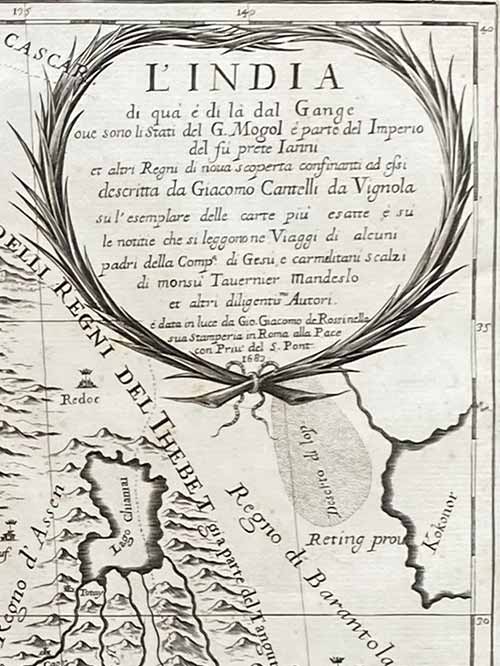 175
140
40
CASCAR
L'INDIA
di quà è di là dal Gange
oue sono li Stati del G. Mogol è parte del Imperio
del fú prete Ianni
et altri Regni di noua scoperta confinanti ad essi
descritta da Giacomo Cantelli da Vignola
su l'esemplare delle carte più esatte e su
le notitie che si leggono ne Viaggi di alcuni
padri della Compª. di Gesù, e carmelitani scalzi
di monsù Tauernier Mandeslo
et altri diligentiᵐⁱ Autori.
è data in luce da Gio. Giacomo de Rossi nella
sua Stamperia in Roma alla Pace
con Priu. del S. Pont.
1682
35
DELLI REGNI DEL THEBET
già parte del Tangut
Redoc
Deserto di lop
Lago Chiamai
Regno di Barantola
Reting prou
Kokonor
Regno d'Assen
30